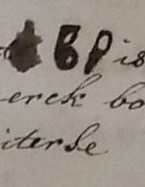 BP is
erck bo
iterse